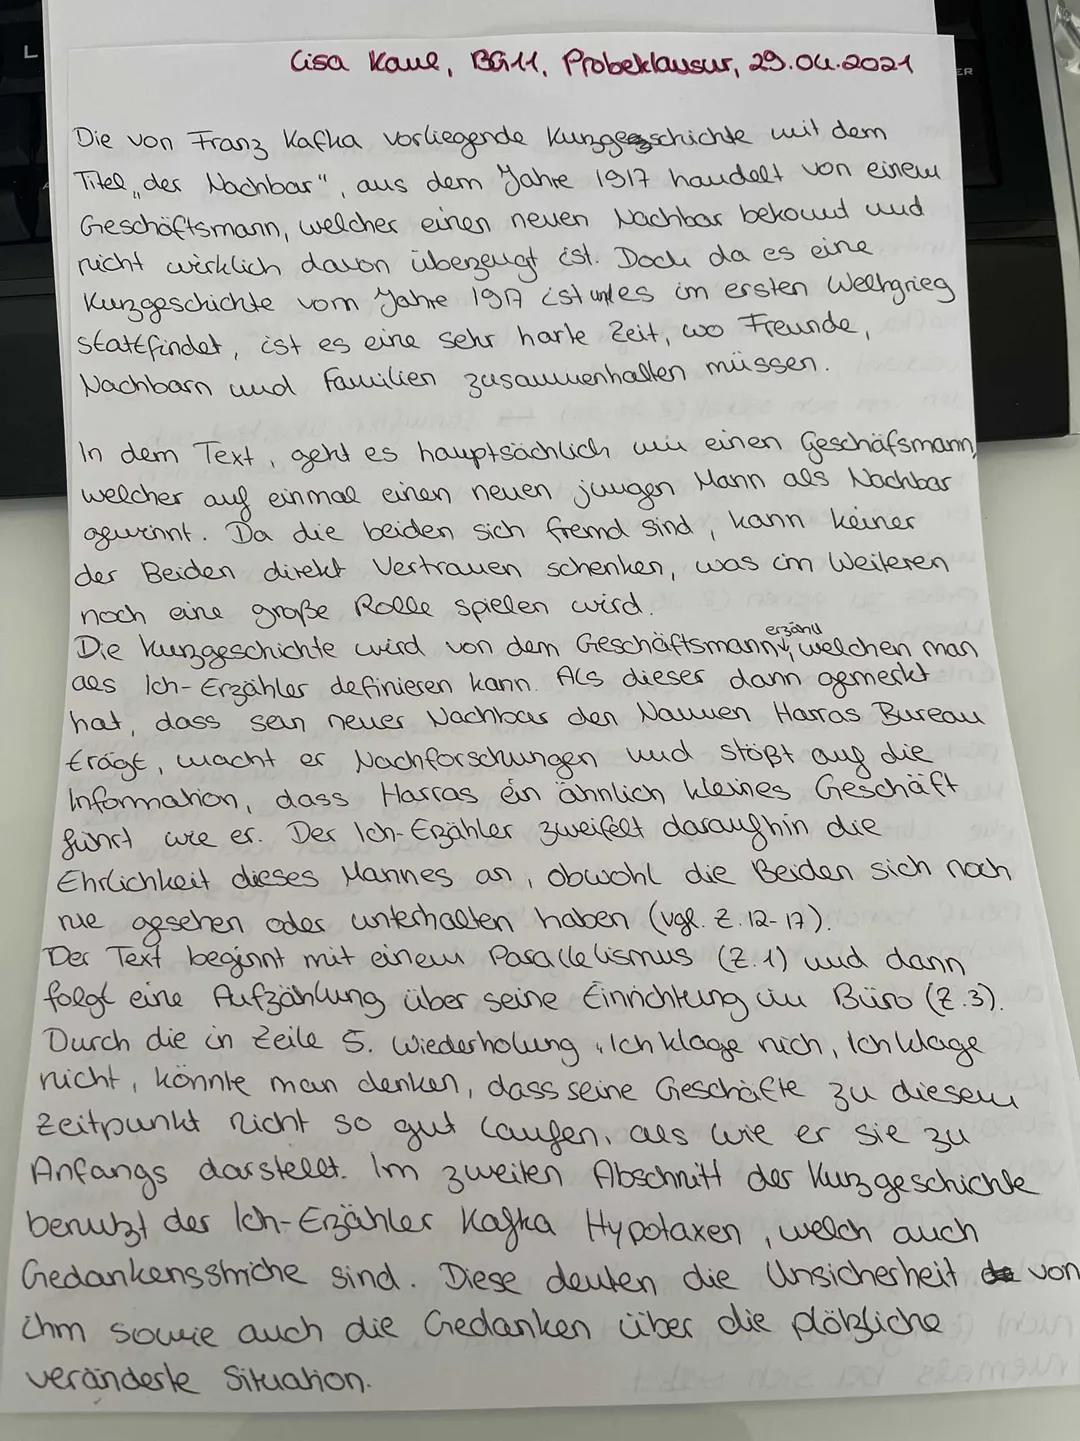 Lisa Kaul, BG11, Probeklausur, 29.04.2021
Die von Franz Kafka vorliegende Kurzgeschichte mit dem
Titel „der Nachbar", aus dem Jahre 1917 handelt von einem
Geschäftsmann, welcher einen neuen Nachbar bekommt und
nicht wirklich davon überzeugt ist. Doch da es eine
Kurzgeschichte vom Jahre 1917 ist und es im ersten Weltgrieg
stattfindet, ist es eine sehr harte Zeit, wo Freunde,
Nachbarn und Familien zusammenhalten müssen.
In dem Text, geht es hauptsächlich um einen Geschäfsmann,
welcher auf einmal einen neuen jungen Mann als Nachbar
gewinnt. Da die beiden sich fremd sind, kann keiner
der Beiden direkt Vertrauen schenken, was im Weiteren
noch eine große Rolle spielen wird.
Die Kurzgeschichte wird von dem Geschäftsmann erzählt, welchen man
als Ich-Erzähler definieren kann. Als dieser dann gemerkt
hat, dass sein neuer Nachbar den Namen Harras Bureau
trägt, macht er Nachforschungen und stößt auf die
Information, dass Harras ein ähnlich kleines Geschäft
führt wie er. Der Ich-Erzähler zweifelt daraufhin die
Ehrlichkeit dieses Mannes an, obwohl die Beiden sich noch
nie gesehen oder unterhalten haben (vgl. Z. 12-17).
Der Text beginnt mit einem Parallelismus (Z. 1) und dann
folgt eine Aufzählung über seine Einrichtung im Büro (Z.3).
Durch die in Zeile 5. Wiederholung „Ich klage nich, Ich klage
nicht, könnte man denken, dass seine Geschäfte zu diesem
Zeitpunkt nicht so gut laufen, als wie er sie zu
Anfangs darstellt. Im zweiten Abschnitt der Kurzgeschichte
benutzt der Ich-Erzähler Kafka Hypotaxen, welch auch
Gedankensstriche sind. Diese deuten die Unsicherheit von
ihm sowie auch die Gedanken über die plötzliche
veränderte Situation.